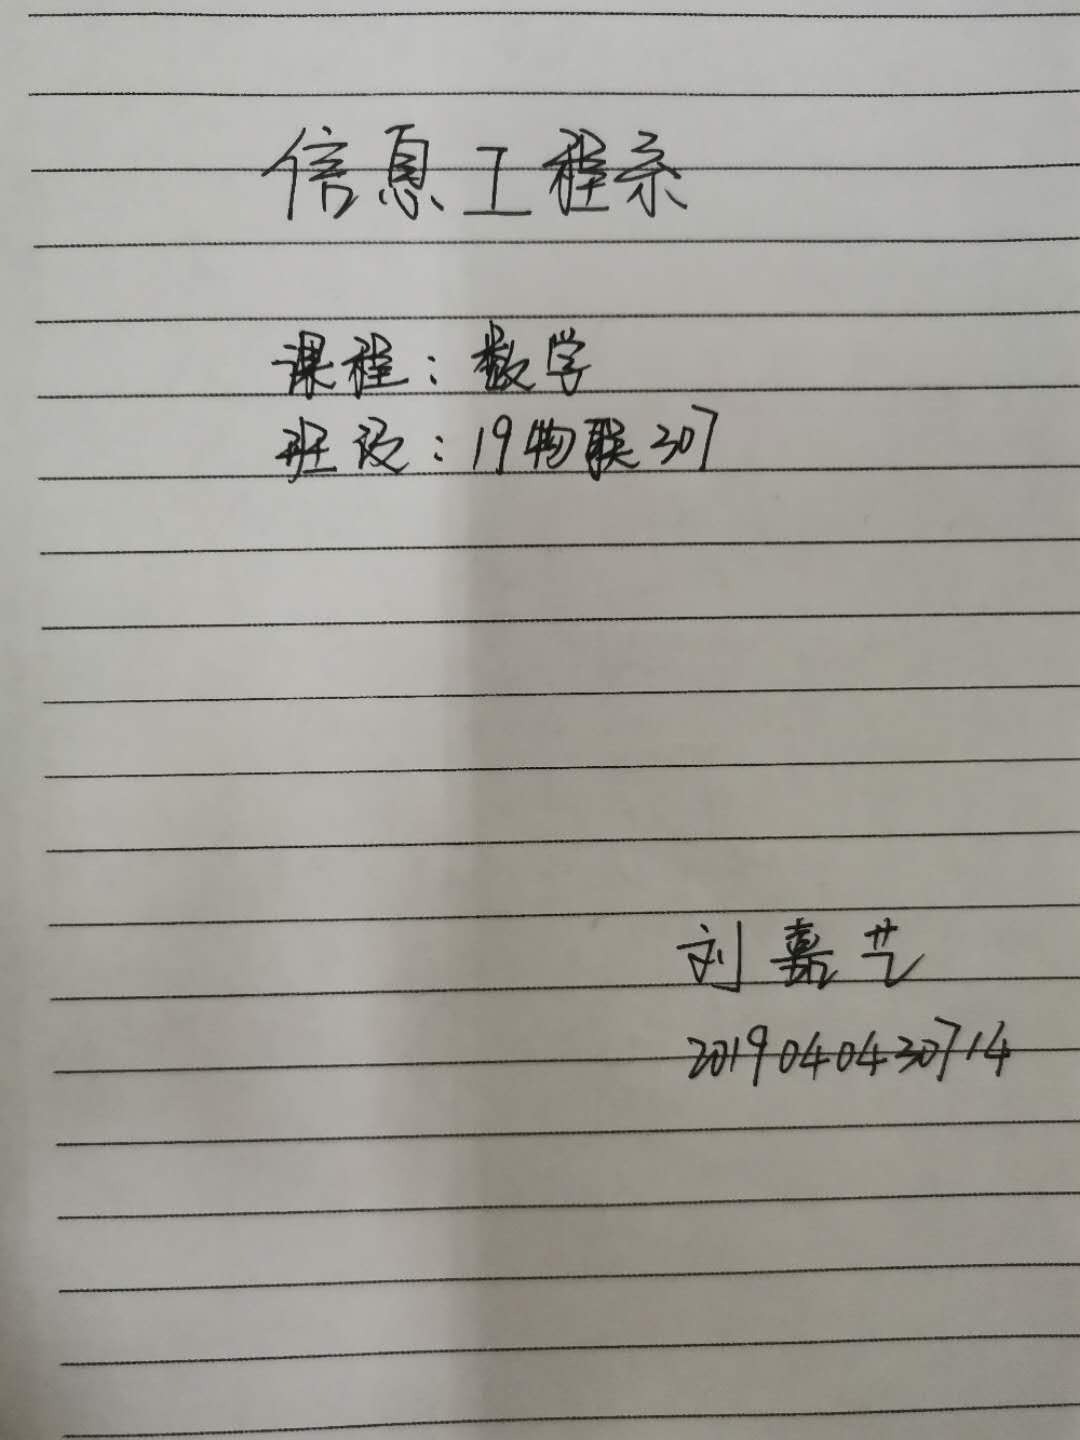 信息工程系
课程：数学
班级：19物联307
刘嘉艺
2019040430714